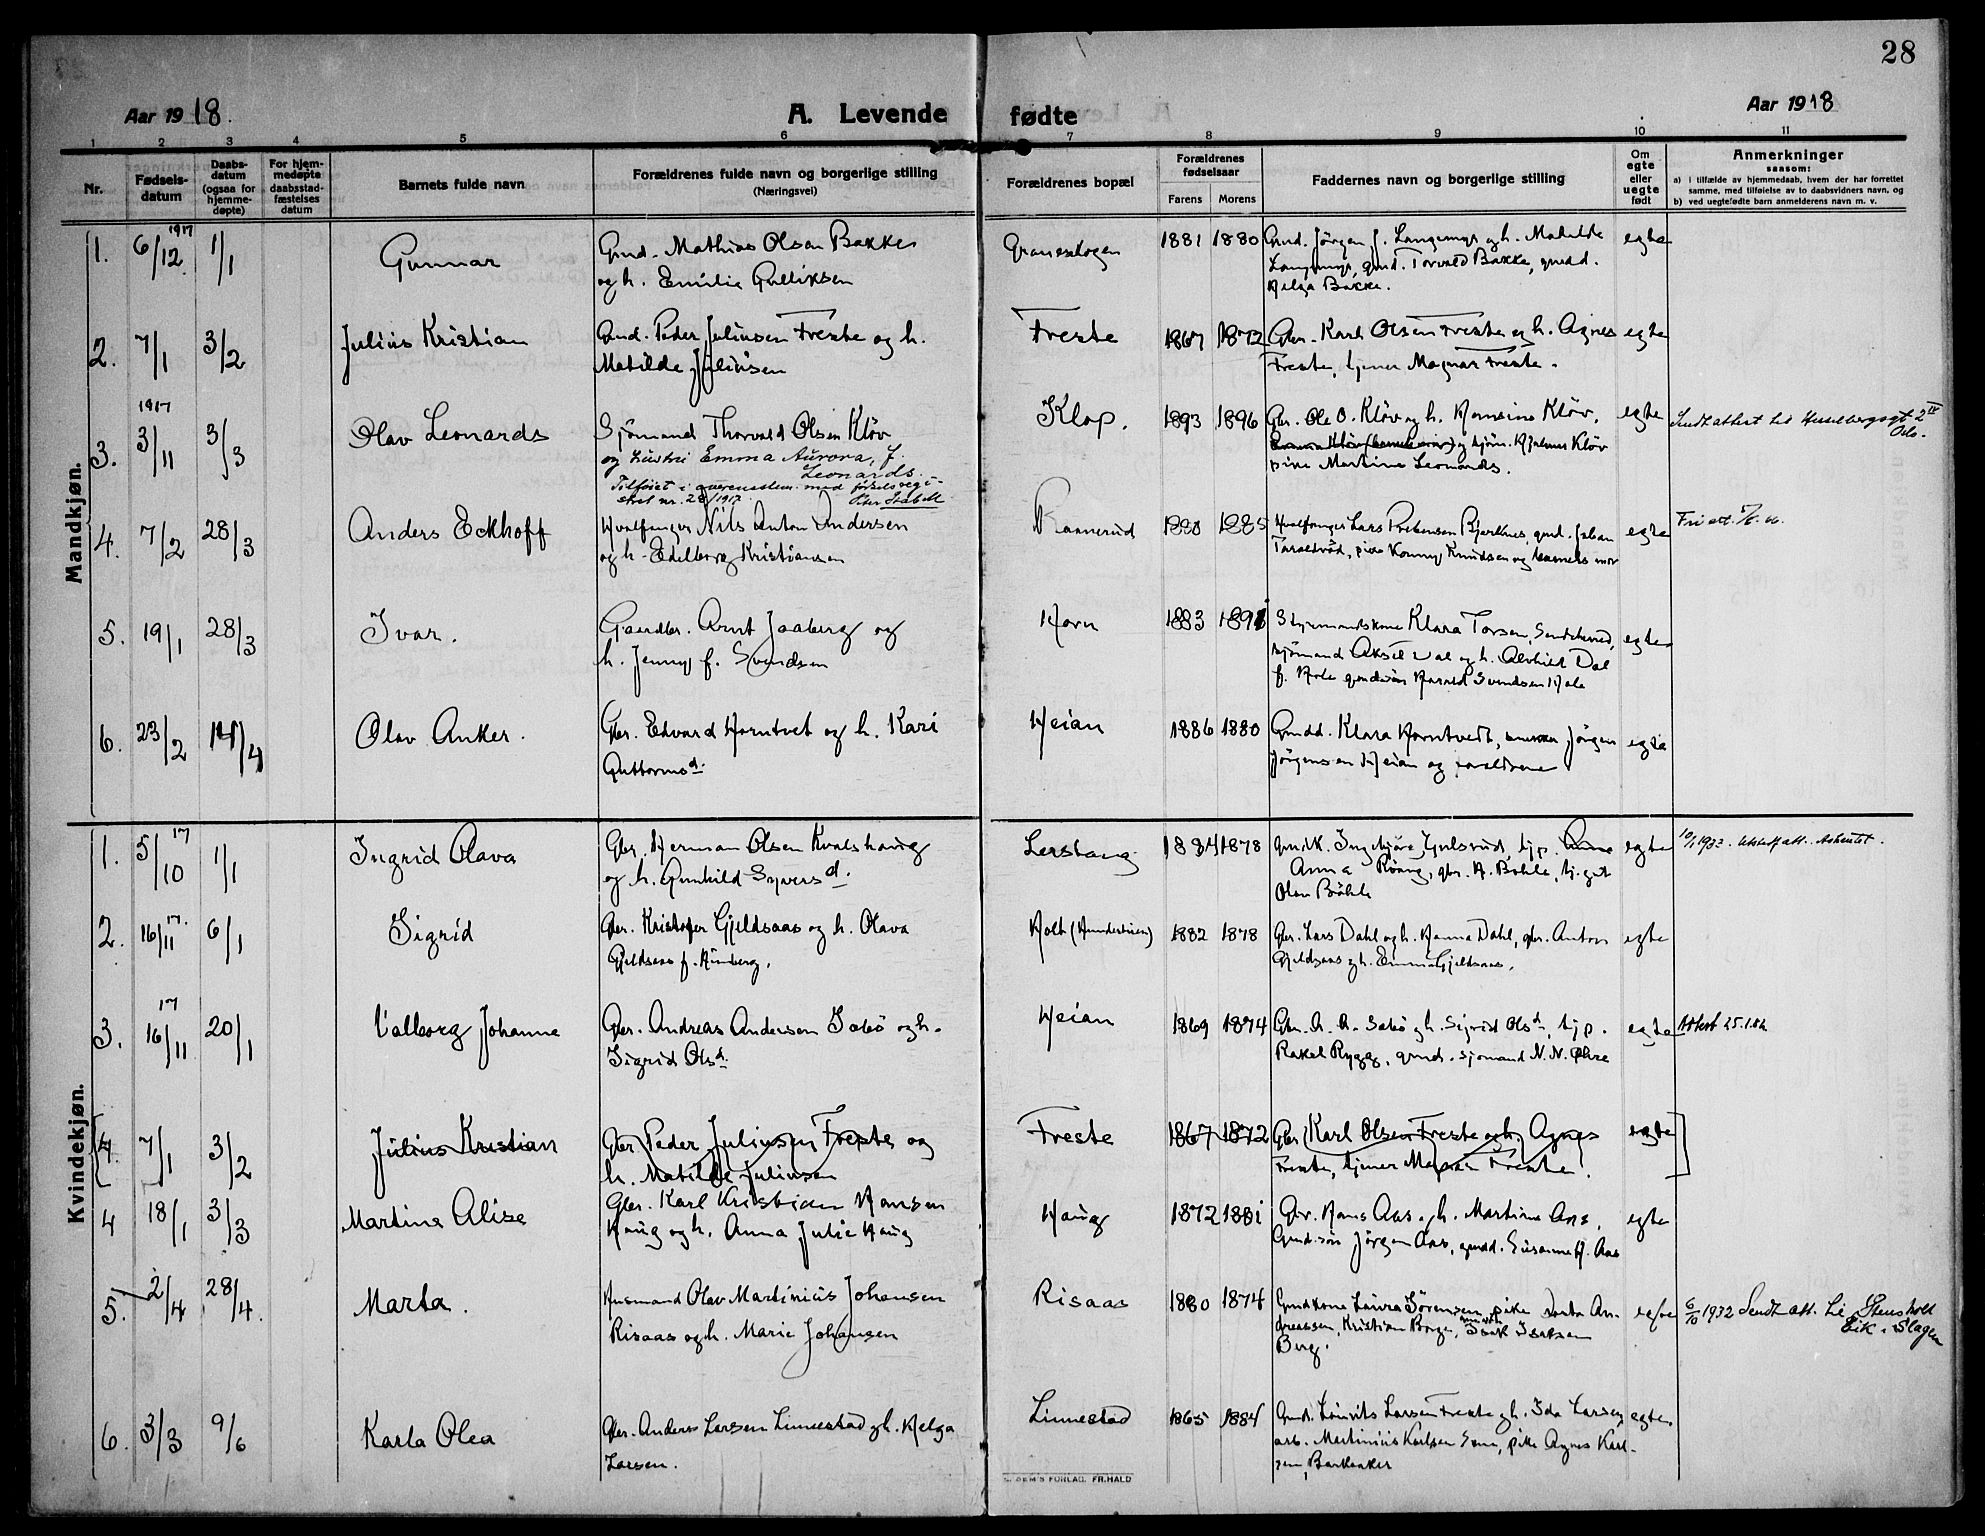 28
Aar 1918.
A. Levende
fødte
Aar 1918
1 2 3 4 5 6 7 8 9 10 11
Nr.
Fødsels-
datum
Daabs-
datum
(ogsaa for
hjemme-
døpte)
For hjem-
medøpte
daabsstad-
fæstelses
datum
Barnets fulde navn
Forældrenes fulde navn og borgerlige stilling
(Næringsvei)
Forældrenes bopæl
Forældrenes
fødselsaar
Farens Morens
Faddernes navn og borgerlige stilling
Om
egte
eller
uegte
født
Anmerkninger
saasom:
a) i tilfælde av hjemmedaab, hvem der har forrettet
samme, med tilføielse av to daabsvidners navn, og
b) ved uegtefødte barn anmelderens navn m. v.
Mandkjøn.
1. 6/12 1917 1/1 Gunnar
Gmd. Mathias Olsen Bakke
og h. Emilie Gulliksen
1881 1880
Gmd. Jörgen J. og h. Matilde
gmd. Torvald Bakke, gmdd.
Helga Bakke.
egte
2. 7/1 3/2 Julius Kristian
Gmd. Peder Juliusen Freste og h.
Matilde Juliusen
Freste 1867 1872
Gbr. Karl Olsen Freste og h. Agnes
Freste, tjener Magnar Freste.
egte
3. 3/11 1917 3/3 Olav Leonards
Sjömand Thorvald Olsen Klöv
og hustru Emma Aurora, f.
Leonards.
Tilföiet i overensstem. med födselsregi-
stret nr. 28/1917.
Klop. 1893 1896
Gbr. Ole O. Klöv og h. Hansine Klöv,
og sjöm. Hjalmar Klöv
pike Martine Leonards.
egte
Sendt attest til Hesselbergsgt. 2 IV
Oslo.
4. 7/2 28/3 Anders Eckhoff
Hvalfanger Nils Anton Andersen
og h. Edelborg Kristiansen
Raanerud 1880 1885
Hvalfanger Lars Prebensen Bjerknes, gmd. Johan
pike Konny Knudsen og barnets mor
egte
5. 19/1 28/3 Ivar.
Gaardbr. Arnt Jaaberg og
h. Jenny f. Svendsen
Horn 1883 1891
Styrmandskone Klara Torsen, Sandeherred,
sjömand Aksel Dal og h. Alvhild Dal
f. Hole gmdsön Harald Svendsen Hole
egte
6. 23/2 14/4 Olav Anker.
Gbr. Edvard Horntvet og h. Kari
Guttormsd.
Heian 1886 1880
Gmdd. Klara Horntvedt, Jörgen
Jörgensen Heian og foreldrene
egte
Kvindekjøn.
1. 5/10 17 1/1 Ingrid Olava
Gbr. Herman Olsen Kvelshaug
og h. Gunhild Syversd.
Lerstang 1884 1878
Gmdk. Ingebjörg Gulsrud, tjp.
Anna Röang, gbr. A. Böhle, tj. gut
Olav Böhle
egte
10/1 1933. Utstedt att.
2. 16/11 17. 6/1 Sigrid
Gbr. Kristofer Gjeldsaas og h. Olava
Gjeldsaas f. Himberg.
Holt (Hundstuen) 1882 1878
Gbr. Lars Dahl og h. Hanna Dahl, gbr. Anton
Gjeldsaas og h. Emma Gjeldsaas.
egte
3. 16/11 17 20/1 Valborg Johanne
Gbr. Andreas Andersen Sobö og h.
Sigrid Olsd.
Heian 1869 1874
Gbr. A. A. Sobö og h. Sigrid Olsd., tjp.
Rakel Rygg, gmds. sjömand N. N. Ökre
egte
Attest 25.1.82
4. 7/1 3/2 Julius Kristian
Gbr Peder Juliusen Freste og
h. Matilde Juliusen
Freste 1867 1872
Gbr Karl Olsen Freste og h. Agnes
Freste, tjener Magnar Freste.
egte
4 18/1 3/3 Martina Alise
Gbr. Karl Kristian Hansen
Haug og h. Anna Julie Haug
Haug 1872 1881
Gbr. Hans Aas og h. Martine Aas,
Gmd.sön Jörgen Aas, gmdd. Susanne H. Aas
egte
5. 2/4 28/4. Marta.
Husmand Olav Martinius Johansen
Risaas og h. Marie Johansen
Risaas 1880 1874
Gmdkone Laura Sörensen, pike Dorta An-
dreassen, Kristian Borge, Isak Isaksen
Berg.
egte
6/10 1932 Sendt att. til Stensholt
Eik i Slagen
6. 3/3 9/6 Karla Olea
Gbr. Anders Larsen Linnestad og h. Helga
Larsen.
Linnestad 1865 1884
Gmd. Larsen Freste og h. Ida Larsen,
arb. Martinius Karlsen pike Agnes Karl-
sen, Barkaaker
egte.
SEM'S FORLAG, FR.HALD